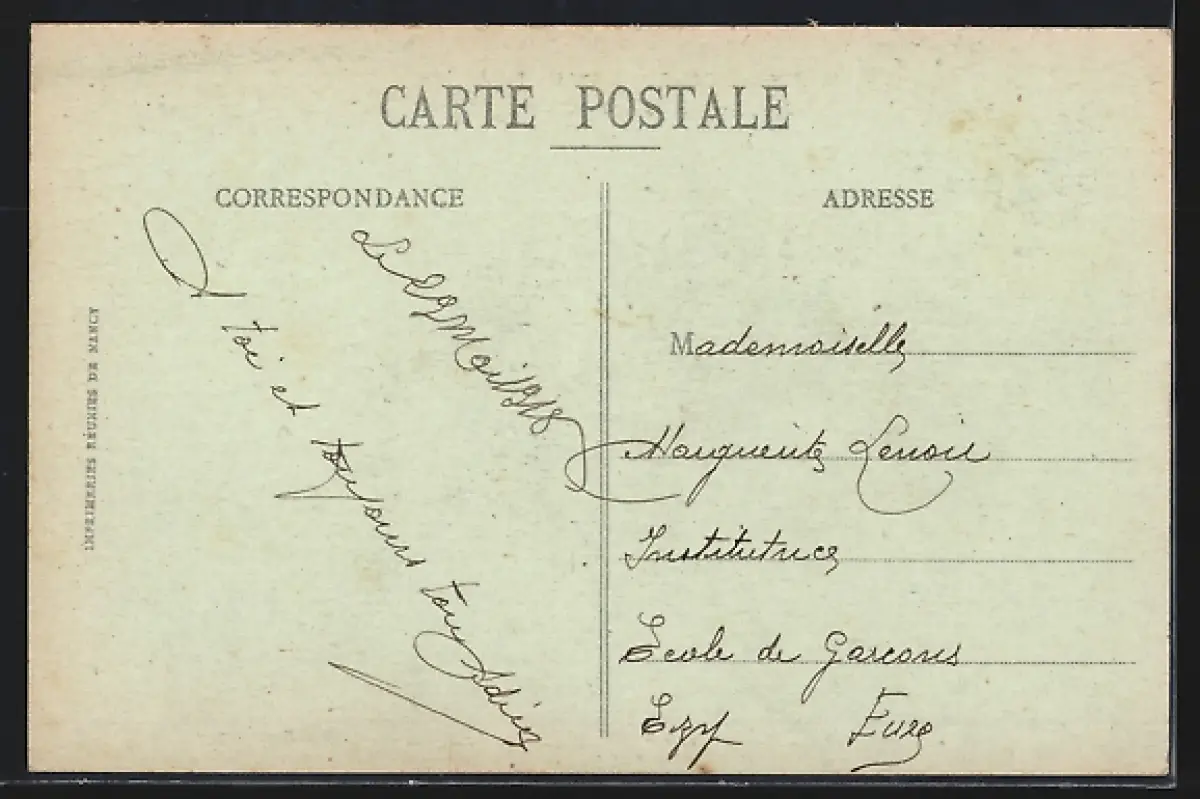 CARTE POSTALE
CORRESPONDANCE
ADRESSE
Le 22 Mai 1918
A toi et toujours ton
Mademoiselle
Marguerite Lenoir
Institutrice
Ecole de Garcons
Ezy Eure
IMPRIMERIES RÉUNIES DE NANCY